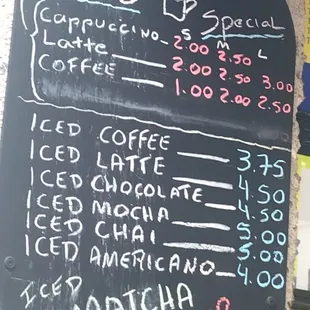 Special
S M L
Cappuccino - 2.00 2.50
Latte — 2.00 2.50 3.00
COFFEE — 1.00 2.00 2.50
ICED COFFEE — 3.75
ICED LATTE — 4.50
ICED CHOCOLATE — 4.50
ICED MOCHA — 5.00
ICED CHAI — 5.00
ICED AMERICANO — 4.00
ICED
MATCHA